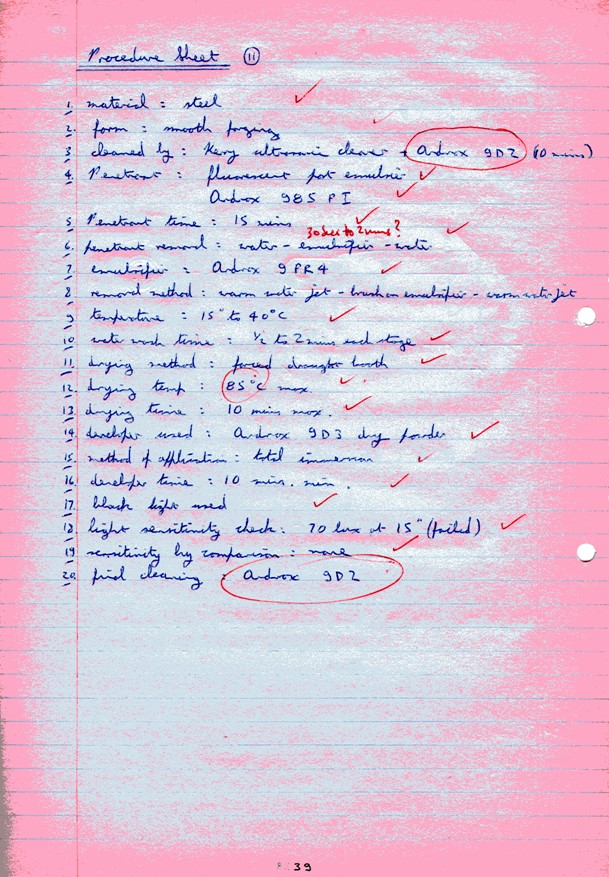 Procedure Sheet 11
1. material : steel
2. form : smooth forging
3. cleaned by : Kerry ultrasonic cleaner + Ardrox 9D2 (10 mins)
4. Penetrant : fluorescent post emulsifier
Ardrox 985 P I
5. Penetrant time : 15 mins
30 secs to 2 mins?
6. penetrant removal : water - emulsifier - water
7. emulsifier : Ardrox 9PR4
8. removal method : warm water jet - brush on emulsifier - warm water jet
9. temperature : 15° to 40°C
10. water wash time : ½ to 2 mins each stage
11. drying method : forced draught booth
12. drying temp : 85°C max.
13. drying time : 10 mins max.
14. developer used : Ardrox 9D3 dry powder
15. method of application : total immersion
16. developer time : 10 mins. min.
17. black light used
18. light sensitivity check : 70 lux at 15" (failed)
19. sensitivity by comparison : none
20. final cleaning : Ardrox 9D2
39